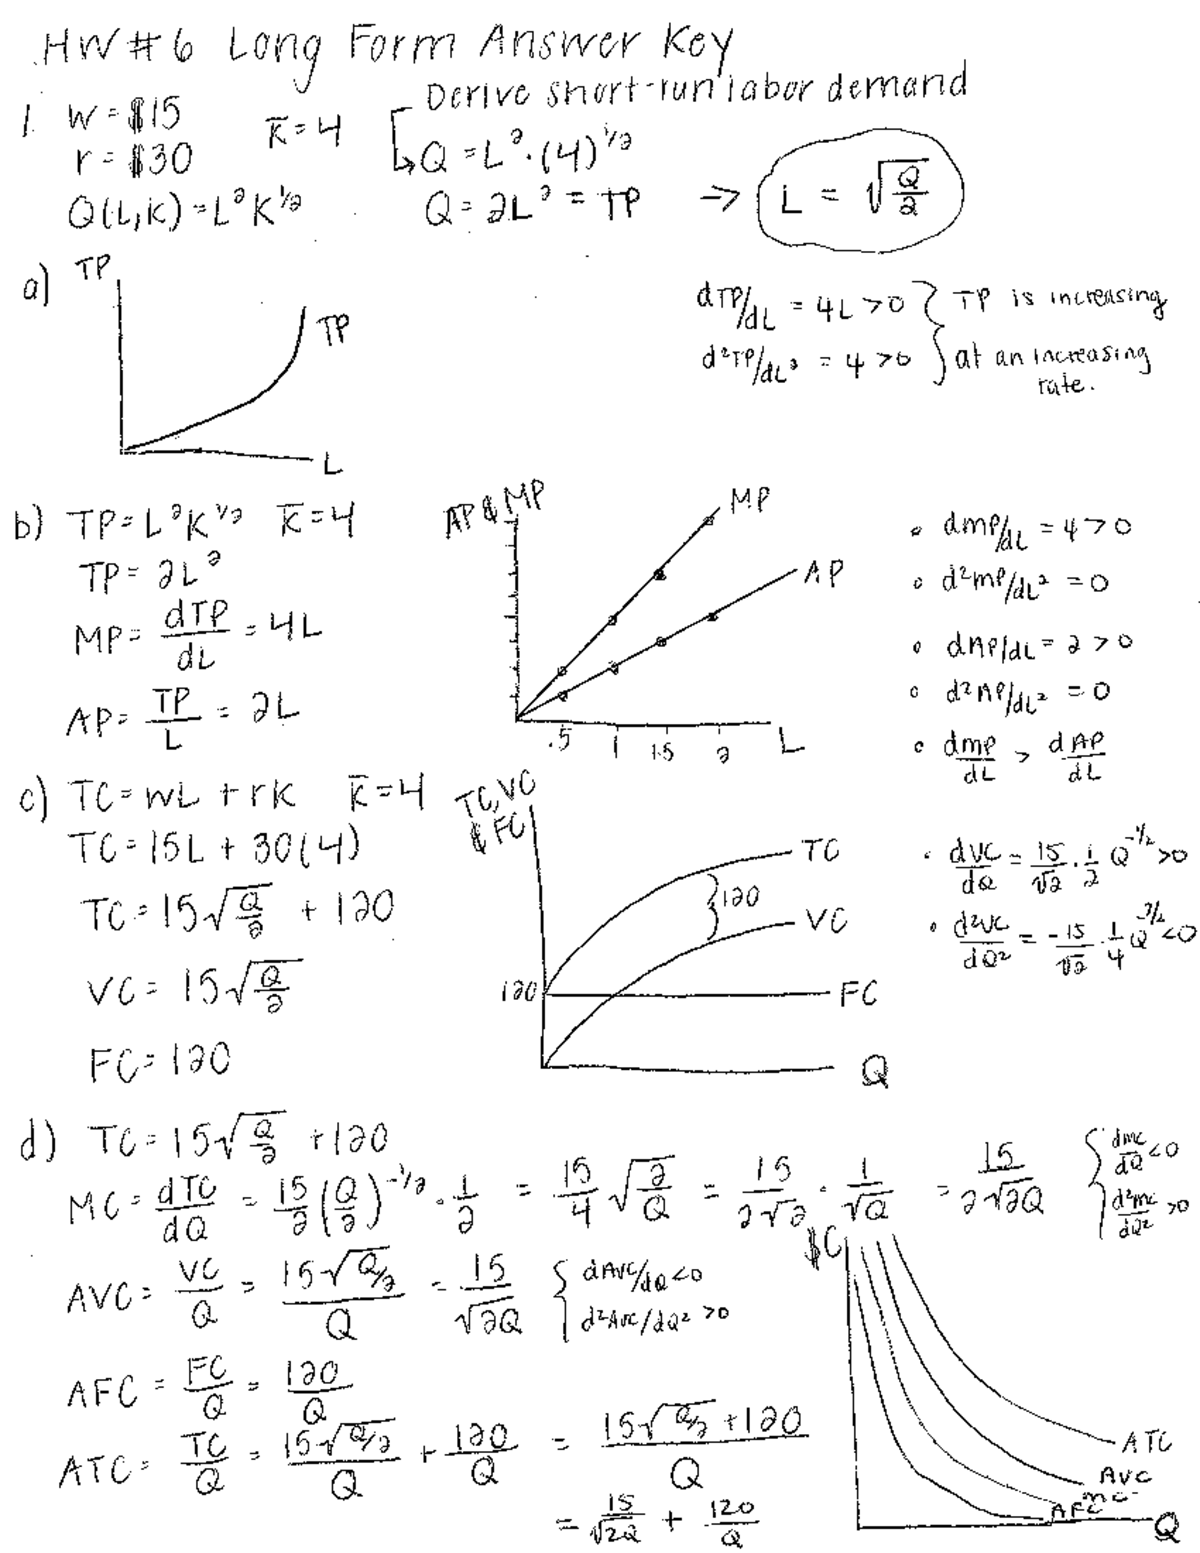 HW#6 Long Form Answer Key
1. W = $15
r = $30
Q(L,K) = L²K^1/2
K̅ = 4
Derive short-run labor demand
Q = L²·(4)^1/2
Q = 2L² = TP → L = √(Q/2)
a) TP
TP
L
dTP/dL = 4L > 0 } TP is increasing
d²TP/dL² = 4 > 0 } at an increasing
rate.
b) TP = L²K^1/2 K̅ = 4
TP = 2L²
MP = dTP/dL = 4L
AP = TP/L = 2L
AP & MP
MP
AP
.5 1 1.5 2 L
• dMP/dL = 4 > 0
• d²MP/dL² = 0
• dAP/dL = 2 > 0
• d²AP/dL² = 0
• dMP/dL > dAP/dL
c) TC = WL + rK K̅ = 4
TC = 15L + 30(4)
TC = 15√(Q/2) + 120
VC = 15√(Q/2)
FC = 120
TC, VC
& FC
TC
} 120
VC
120
FC
Q
• dVC/dQ = 15/√2 · 1/2 Q^-1/2 > 0
• d²VC/dQ² = -15/√2 · 1/4 Q^-3/2 < 0
d) TC = 15√(Q/2) + 120
MC = dTC/dQ = 15/2 (Q/2)^-1/2 · 1/2 = 15/4 √(2/Q) = 15/2√2 · 1/√Q = 15/2√2Q { dMC/dQ < 0
d²MC/dQ² > 0
AVC = VC/Q = 15√(Q/2)/Q = 15/√2Q { dAVC/dQ < 0
d²AVC/dQ² > 0
AFC = FC/Q = 120/Q
ATC = TC/Q = 15√(Q/2)/Q + 120/Q = 15√(Q/2) + 120/Q
= 15/√2Q + 120/Q
$C
ATC
AVC
MC
AFC
Q